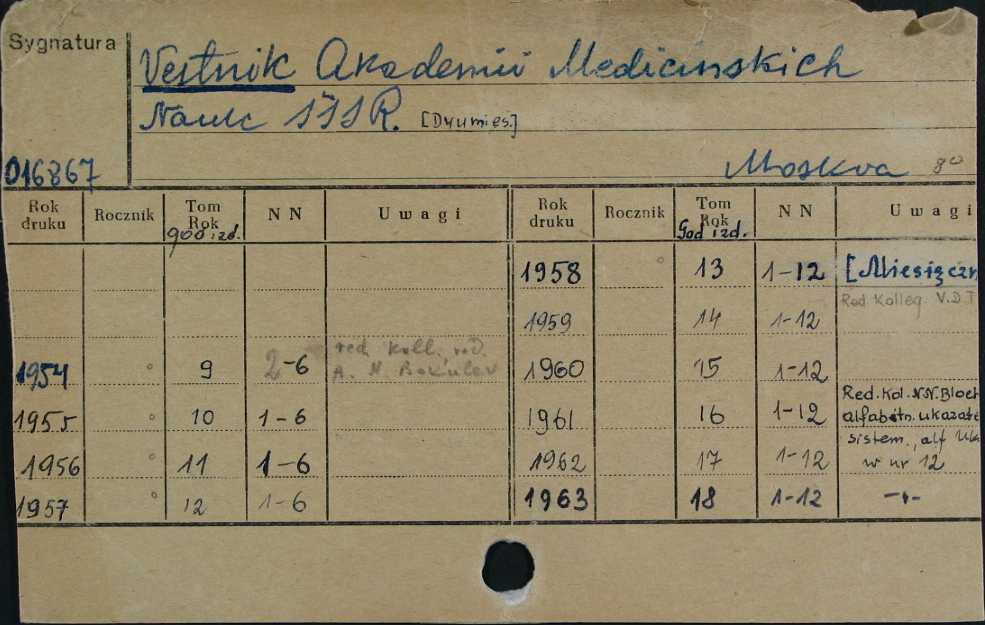 Sygnatura
Vestnik Akademii Medicinskich
Nauk SSSR. [Dwumies.]
016867
Moskva 8°
Rok druku Rocznik Tom Rok god izd. NN Uwagi Rok druku Rocznik Tom Rok God izd. NN Uwagi
1958 13 1-12 [Miesięczn
Red Kolleg. V.D.T
1959 14 1-12
1954 9 2-6 red. Koll. red. A. N. Bakulev 1960 15 1-12
1955 10 1-6 1961 16 1-12 Red. Kol. N.N. Bloch
alfabetn. ukazate
1956 11 1-6 1962 17 1-12 sistem., alf uka
w nr 12
1957 12 1-6 1963 18 1-12 -"-